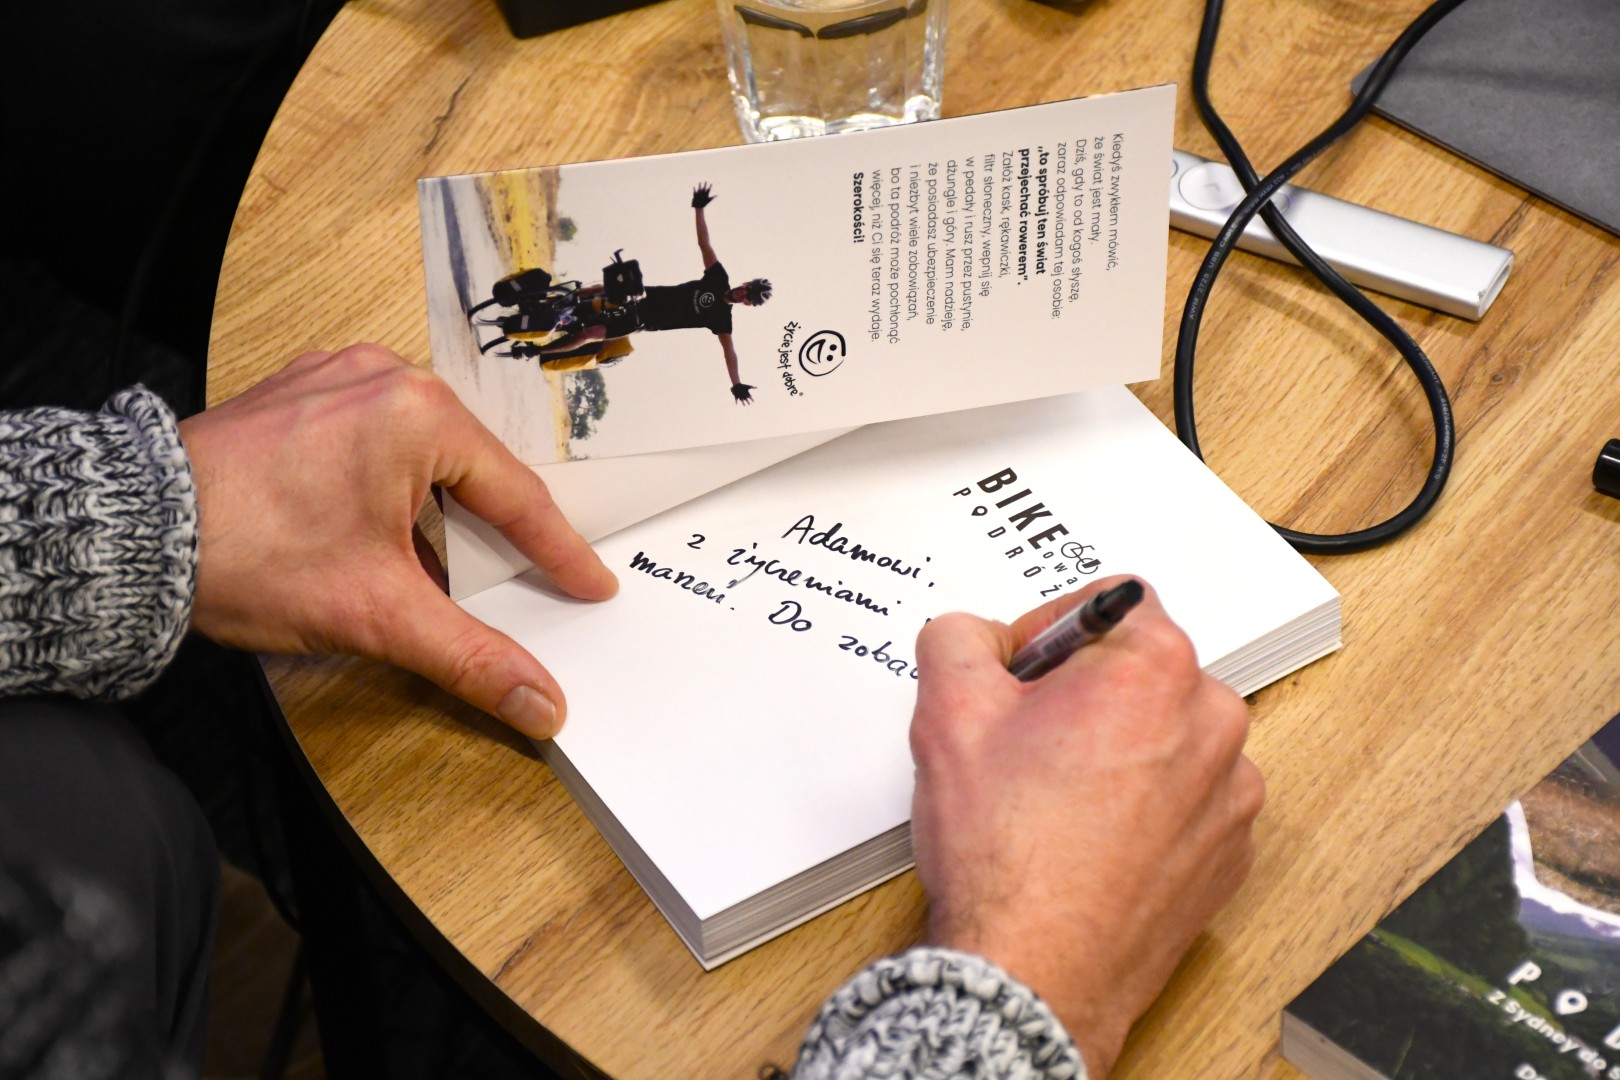 Kiedyś zwykłem mówić,
że świat jest mały.
Dziś, gdy to od kogoś słyszę,
zaraz odpowiadam tej osobie:
„to spróbuj ten świat
przejechać rowerem”.
Załóż kask, rękawiczki,
filtr słoneczny, wepnij się
w pedały i rusz przez pustynie,
dżungle i góry. Mam nadzieję,
że posiadasz ubezpieczenie
i niezbyt wiele zobowiązań,
bo ta podróż może pochłonąć
więcej, niż Ci się teraz wydaje.
Szerokości!
życie jest dobre
BIKE
owa
PODRÓŻ
Adamowi,
z życzeniami
marzeń. Do zoba
z Sydney do